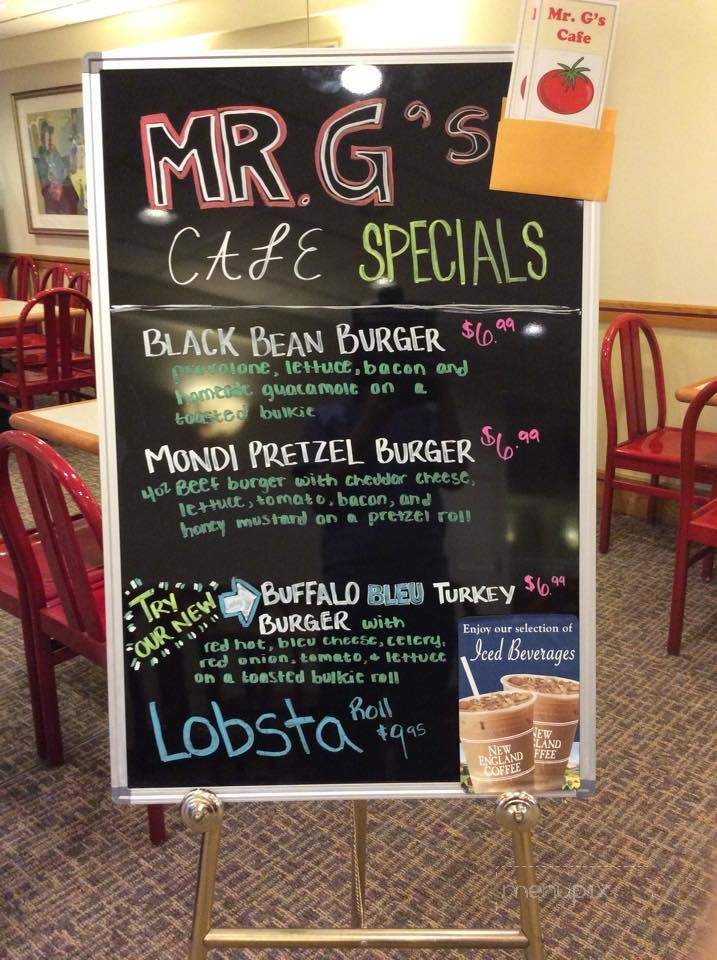 Mr. G's
Cafe
MR. G's
CAFE SPECIALS
BLACK BEAN BURGER $6.99
provolone, lettuce, bacon and
homemade guacamole on a
toasted bulkie
MONDI PRETZEL BURGER $6.99
4oz Beef burger with cheddar cheese,
lettuce, tomato, bacon, and
honey mustard on a pretzel roll
TRY
OUR NEW
BUFFALO BLEU TURKEY $6.99
BURGER with
red hot, bleu cheese, celery,
red onion, tomato, & lettuce
on a toasted bulkie roll
Lobsta Roll
$9.95
Enjoy our selection of
Iced Beverages
NEW
ENGLAND
COFFEE
menupix